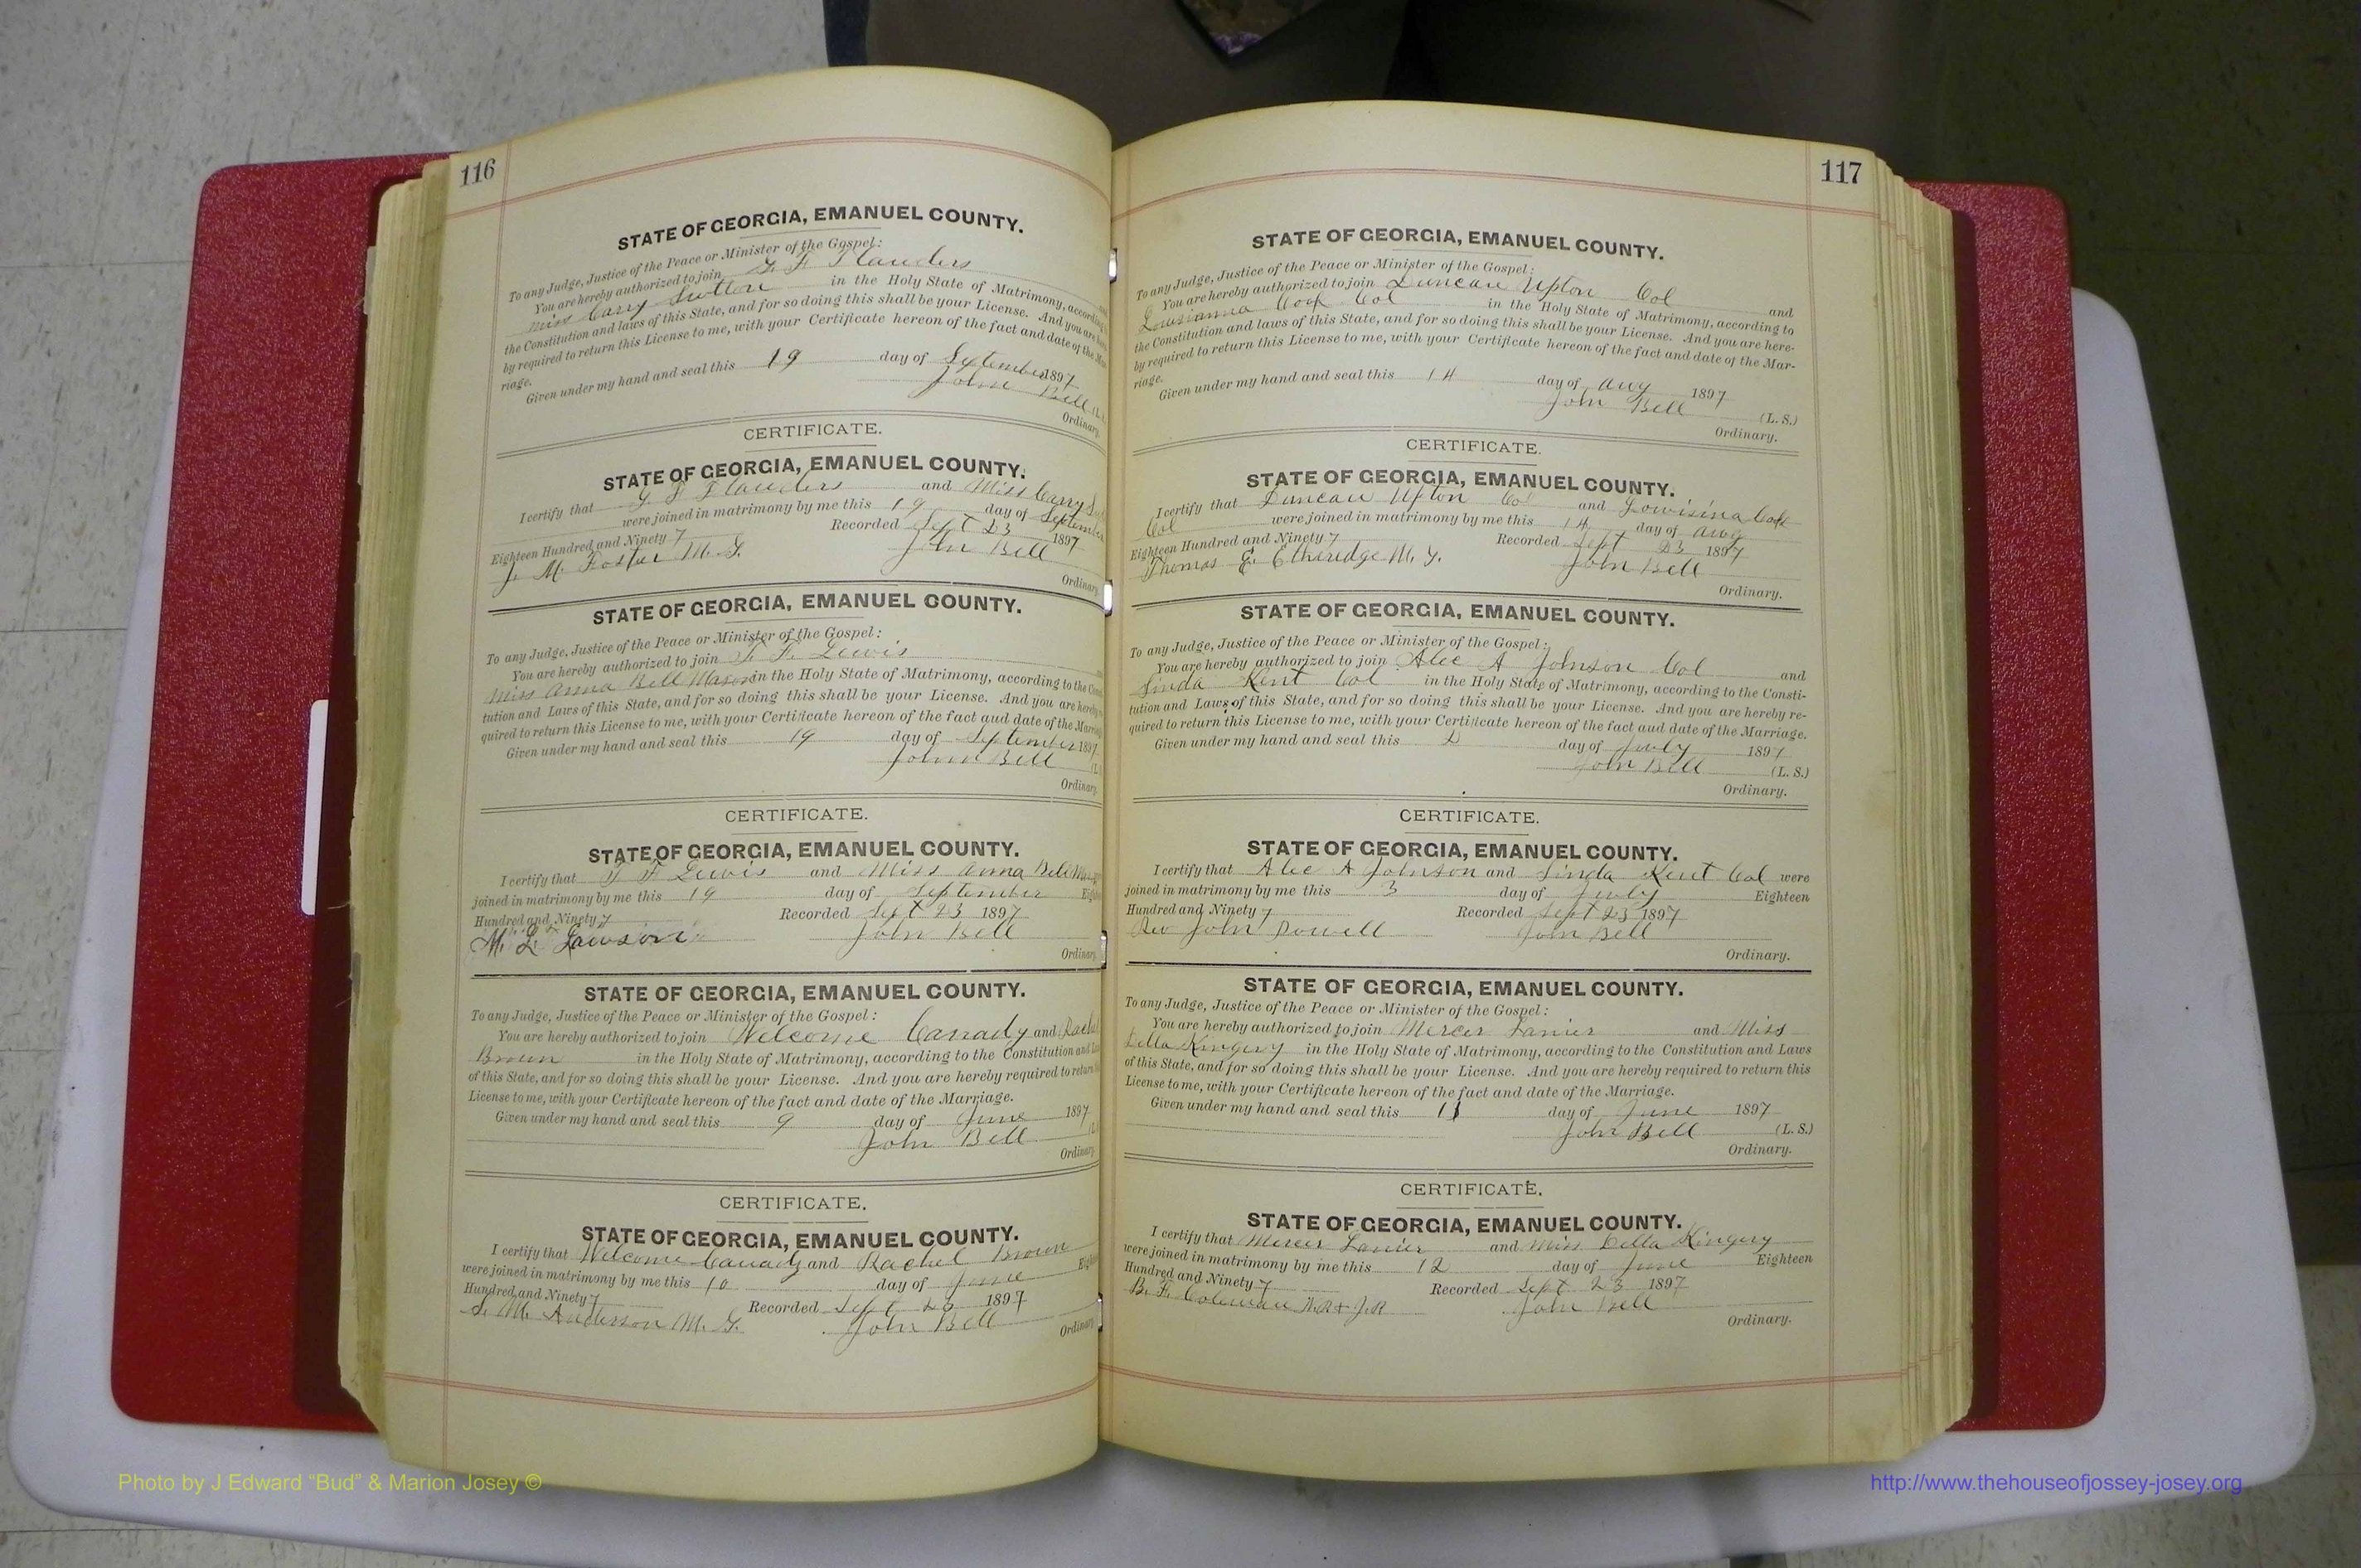 116
STATE OF GEORGIA, EMANUEL COUNTY.
To any Judge, Justice of the Peace or Minister of the Gospel:
You are hereby authorized to join F Flanders
Miss Carry Sutton in the Holy State of Matrimony, according
the Constitution and laws of this State, and for so doing this shall be your License. And you are
by required to return this License to me, with your Certificate hereon of the fact and date of the
riage.
Given under my hand and seal this 19 day of September 1897
John Bell
Ordinary.
CERTIFICATE.
STATE OF GEORGIA, EMANUEL COUNTY.
I certify that F Flanders and Miss Carry
were joined in matrimony by me this 19 day of September
Eighteen Hundred and Ninety 7 Recorded Sept 23 1897
J. M. Foster M. G. John Bell
Ordinary.
STATE OF GEORGIA, EMANUEL COUNTY.
To any Judge, Justice of the Peace or Minister of the Gospel:
You are hereby authorized to join F. Lewis
Miss Anna Bell in the Holy State of Matrimony, according to the
tution and Laws of this State, and for so doing this shall be your License. And you are hereby
quired to return this License to me, with your Certificate hereon of the fact and date of the
Given under my hand and seal this 19 day of September 1897
John Bell
Ordinary.
CERTIFICATE.
STATE OF GEORGIA, EMANUEL COUNTY.
I certify that F Lewis and Miss Anna Bell
joined in matrimony by me this 19 day of September
Hundred and Ninety 7 Recorded Sept 23 1897
M. L. Lawson John Bell
Ordinary.
STATE OF GEORGIA, EMANUEL COUNTY.
To any Judge, Justice of the Peace or Minister of the Gospel:
You are hereby authorized to join Welcome Canady and
Brown in the Holy State of Matrimony, according to the Constitution and
of this State, and for so doing this shall be your License. And you are hereby required to return
License to me, with your Certificate hereon of the fact and date of the Marriage.
Given under my hand and seal this 9 day of June 1897
John Bell
Ordinary.
CERTIFICATE.
STATE OF GEORGIA, EMANUEL COUNTY.
I certify that Welcome Canady and Rachel Brown
were joined in matrimony by me this 10 day of June
Hundred and Ninety 7 Recorded Sept 23 1897
S. M. Anderson M. G. John Bell
Ordinary
117
STATE OF GEORGIA, EMANUEL COUNTY.
To any Judge, Justice of the Peace or Minister of the Gospel:
You are hereby authorized to join Duncan Upton Col and
Cook Col in the Holy State of Matrimony, according to
the Constitution and laws of this State, and for so doing this shall be your License. And you are here-
by required to return this License to me, with your Certificate hereon of the fact and date of the Mar-
riage.
Given under my hand and seal this 14 day of Aug 1897
John Bell (L. S.)
Ordinary.
CERTIFICATE.
STATE OF GEORGIA, EMANUEL COUNTY.
I certify that Duncan Upton Col and Cook
Col were joined in matrimony by me this 14 day of Aug
Eighteen Hundred and Ninety 7 Recorded Sept 23 1897
Thomas E Etheredge M. G. John Bell
Ordinary.
STATE OF GEORGIA, EMANUEL COUNTY.
To any Judge, Justice of the Peace or Minister of the Gospel:
You are hereby authorized to join Alec A Johnson Col and
Linda Kent Col in the Holy State of Matrimony, according to the Consti-
tution and Laws of this State, and for so doing this shall be your License. And you are hereby re-
quired to return this License to me, with your Certificate hereon of the fact and date of the Marriage.
Given under my hand and seal this 2 day of July 1897
John Bell (L. S.)
Ordinary.
CERTIFICATE.
STATE OF GEORGIA, EMANUEL COUNTY.
I certify that Alec A Johnson and Linda Kent Col were
joined in matrimony by me this 3 day of July Eighteen
Hundred and Ninety 7 Recorded Sept 23 1897
Rev John Powell John Bell
Ordinary.
STATE OF GEORGIA, EMANUEL COUNTY.
To any Judge, Justice of the Peace or Minister of the Gospel:
You are hereby authorized to join Mercer Lanier and Miss
Della Kingery in the Holy State of Matrimony, according to the Constitution and Laws
of this State, and for so doing this shall be your License. And you are hereby required to return this
License to me, with your Certificate hereon of the fact and date of the Marriage.
Given under my hand and seal this 11 day of June 1897
John Bell (L. S.)
Ordinary.
CERTIFICATE.
STATE OF GEORGIA, EMANUEL COUNTY.
I certify that Mercer Lanier and Miss Della Kingery
were joined in matrimony by me this 12 day of June Eighteen
Hundred and Ninety 7 Recorded Sept 23 1897
B. F. Coleman John Bell
Ordinary.
Photo by J Edward “Bud” & Marion Josey ©
http://www.thehouseofjossey-josey.org